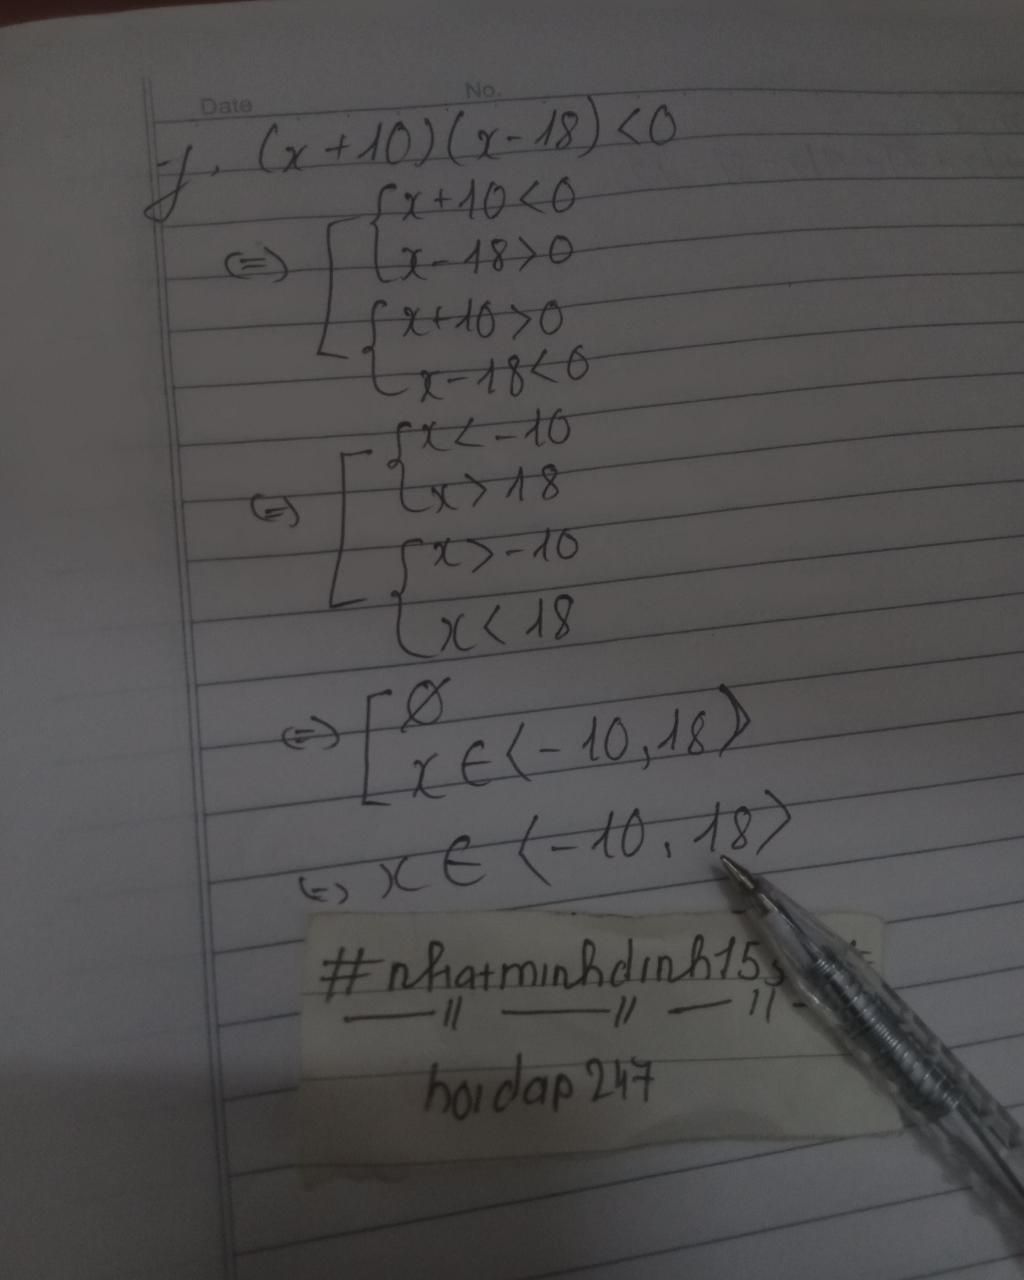 Date No.
y, (x+10)(x-18)<0
(=) [ { x+10<0
x-18>0
{ x+10>0
x-18<0
(=) [ { x<-10
x>18
{ x>-10
x<18
(=) [ Ø
x∈⟨-10,18⟩
(=) x∈⟨-10,18⟩
#nhatminhdinh15
hoidap247